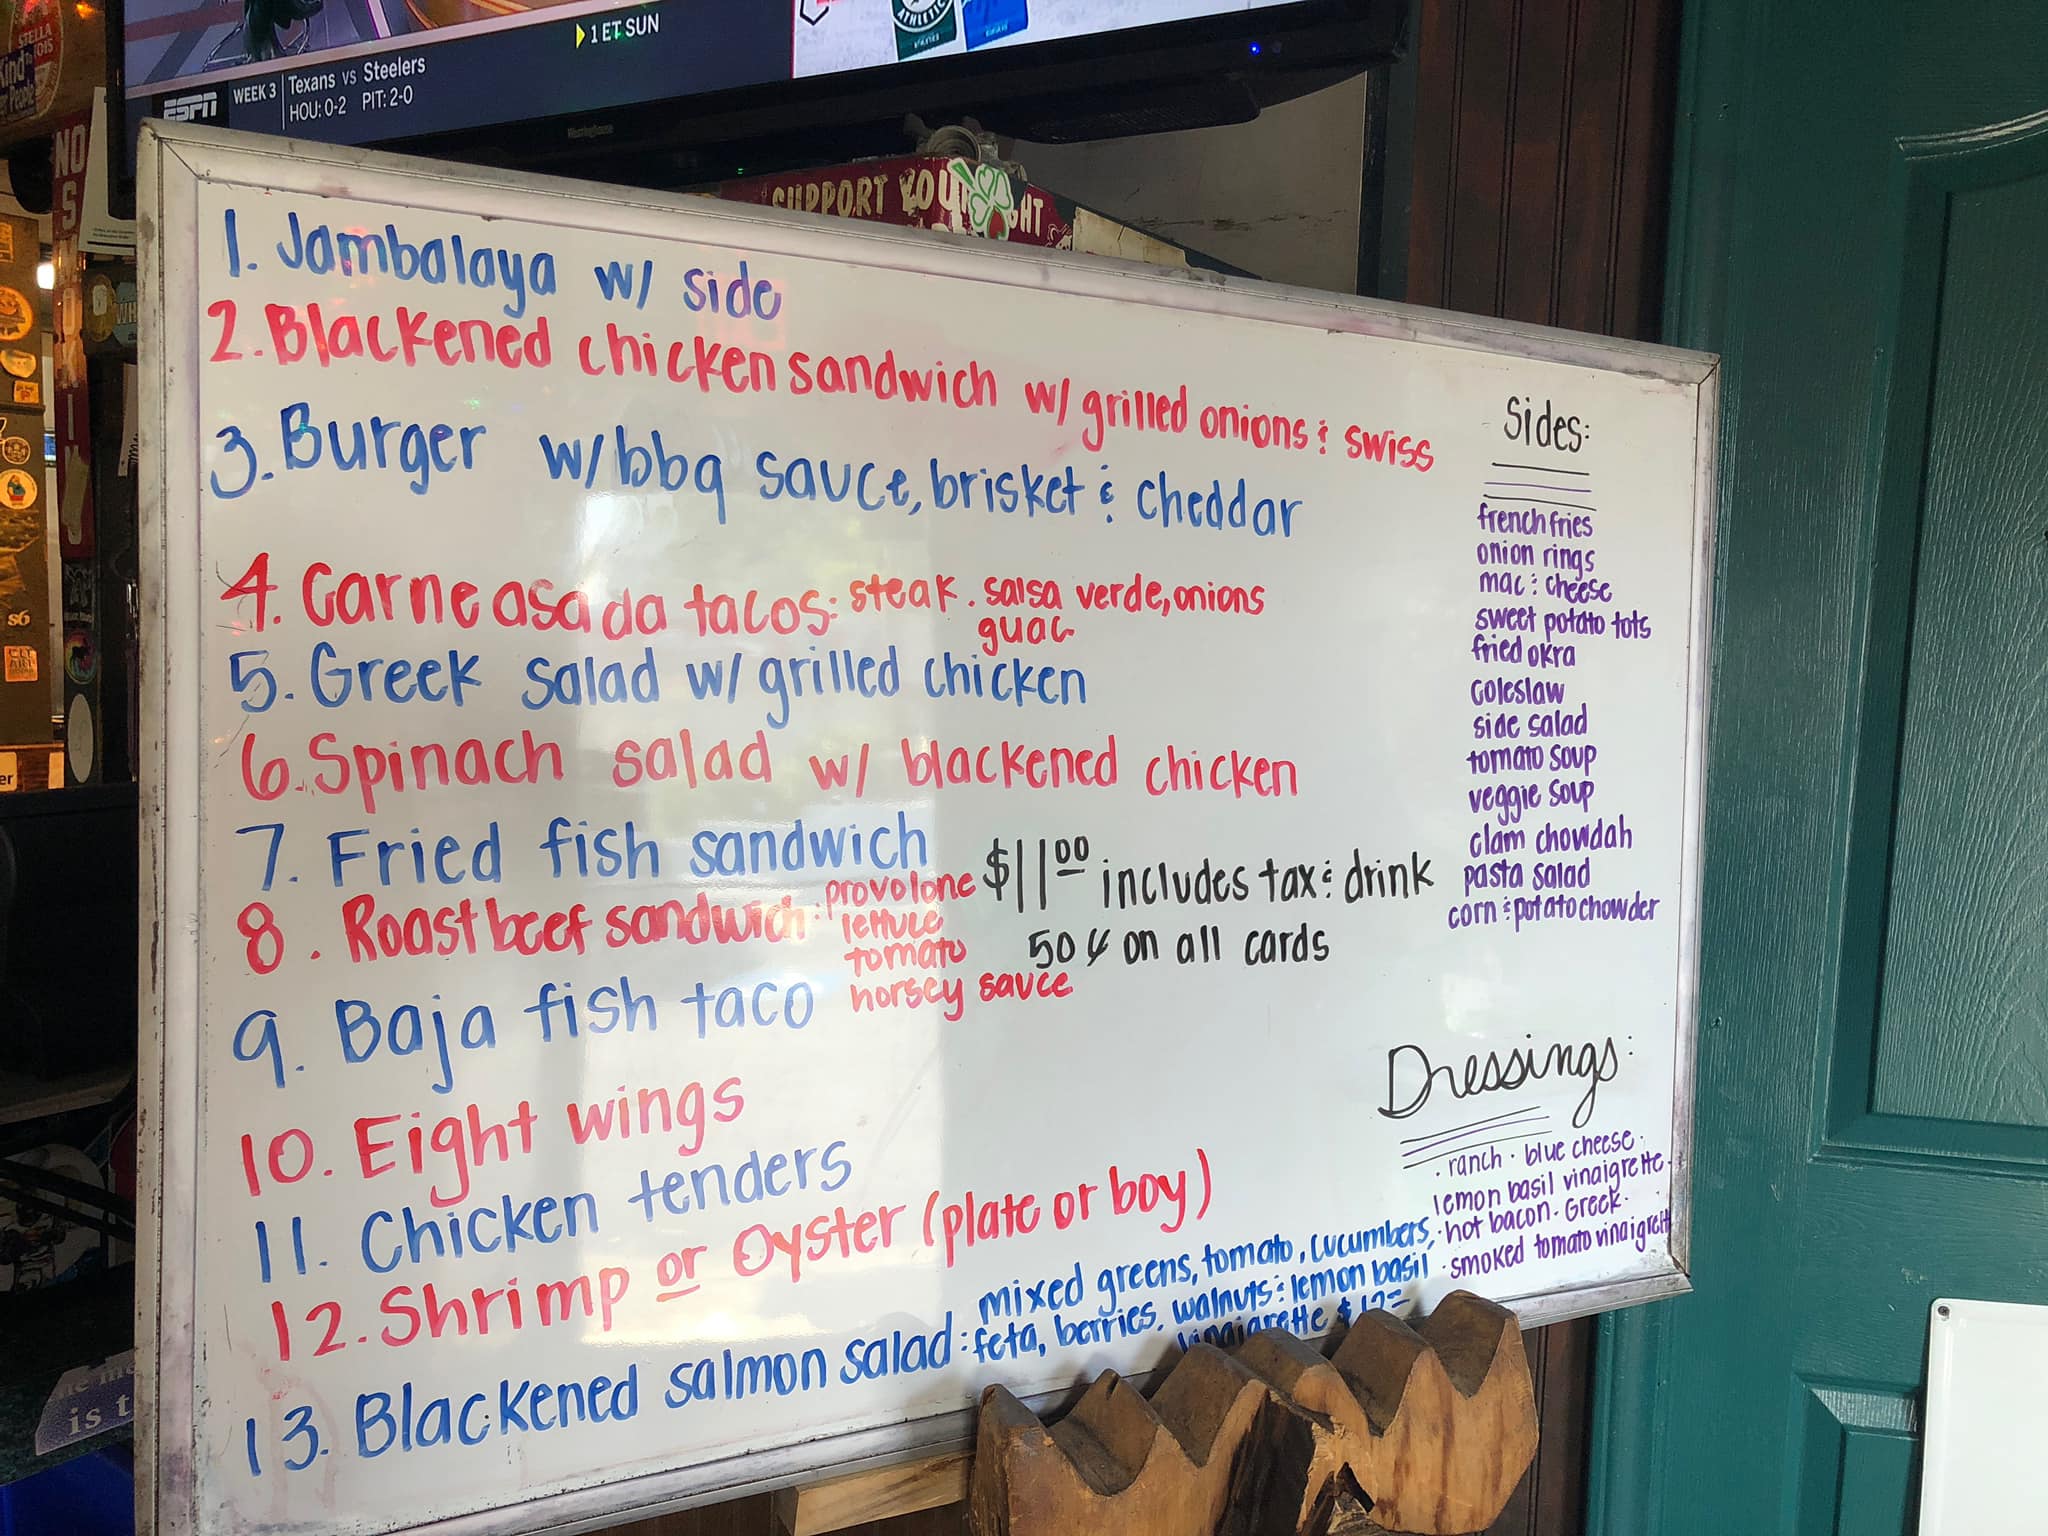 STELLA
Kind
People
ESPN
WEEK 3
Texans vs Steelers
HOU: 0-2 PIT: 2-0
1 ET SUN
ATHLETIC
Westinghouse
NO
SUPPORT
1. Jambalaya w/ side
2. Blackened chicken sandwich w/ grilled onions & swiss
3. Burger w/ bbq sauce, brisket & cheddar
4. Carne asada tacos: steak. salsa verde, onions
guac
5. Greek salad w/ grilled chicken
6. Spinach salad w/ blackened chicken
7. Fried fish sandwich
8. Roast beef sandwich: provolone
lettuce
tomato
horsey sauce
9. Baja fish taco
10. Eight wings
11. Chicken tenders
12. Shrimp or Oyster (plate or boy)
13. Blackened salmon salad: mixed greens, tomato, cucumbers,
feta, berries, walnuts & lemon basil
vinaigrette
$11.00 includes tax & drink
50¢ on all cards
Sides:
french fries
onion rings
mac & cheese
sweet potato tots
fried okra
coleslaw
side salad
tomato soup
veggie soup
clam chowdah
pasta salad
corn & potato chowder
Dressings:
· ranch · blue cheese ·
lemon basil vinaigrette ·
· hot bacon · Greek ·
· smoked tomato vinaigrett
s6
is t